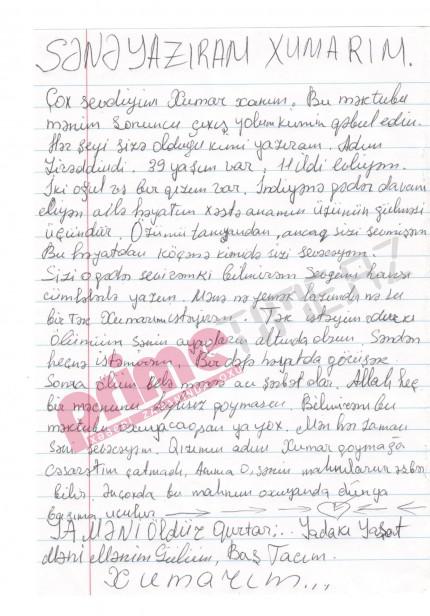 SƏNƏ YAZIRAM XUMARIM.
Çox sevdiyim Xumar xanım. Bu məktubu
mənim sonuncu çıxış yolum kimin qəbul edin.
Hər şeyi sizə olduğu kimi yazıram. Adım
Zirəddindi. 39 yaşım var, 11 ildi evliyəm.
İki oğul və bir qızım var. İndiyənə qədər davam
eliyən ailə həyatım xəstə anamın üzünün gülməsi
üçündür. Özümü tanıyandan, ancaq sizi sevmişəm
Bu həyatdan köçənə kimidə sizi sevəcəm.
Sizi o qədər sevirəmki bilmirəm sevgimi hansı
cümlələrlə yazım. Mənə nə yemək lazımdı nə su
bir tək Xumarımı istəyirəm. Tək istəyim
ölümüm sənin ayaqların altında olsun. Səndən
heçnə istəmirəm. Bir dəfə həyatda görüşək
Sonra ölüm belə mənə ən şərbət olar. Allah heç
bir məcnunu leylisiz qoymasın. Bilmirəm bu
məktubu oxuyacaqsan ya yox. Mən hər zaman
səni sevəcəyəm. Qızımın adını Xumar qoymağa
cəsarətim çatmadı, Amma O, sənin mahnılarını əzbər
bilir. Ənçoxda bu mahnını oxuyanda dünya
başıma uçulur
YA MƏNİ ÖLDÜR Qurtar;.. Yadaki Yaşat
Məni Mənim Gülüm, Baş Tacım.
Xumarım...
PRIMETIME.AZ